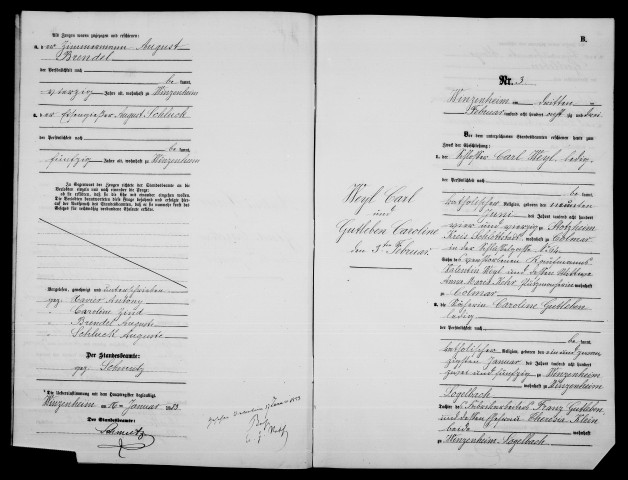 Als Zeugen waren zugezogen und erschienen:
a. der Zimmermann August
Brendel
der Persönlichkeit nach
be kannt,
vierzig Jahre alt, wohnhaft zu Winzenheim
b. der Eisengießer August Schluck
der Persönlichkeit nach
be kannt,
fünfzig Jahre alt, wohnhaft zu Winzenheim
In Gegenwart der Zeugen richtete der Standesbeamte an die
Verlobten einzeln und nach einander die Frage:
ob sie erklären, daß sie die Ehe mit einander eingehen wollen.
Die Verlobten beantworteten diese Frage bejahend und erfolgte hierauf
der Ausspruch des Standesbeamten, daß er sie nunmehr kraft des
Gesetzes für rechtmäßig verbundene Eheleute erkläre.
Vorgelesen, genehmigt und unterschrieben
gez. Xavier Antony
" Caroline
" Brendel Auguste
" Schluck Auguste
Der Standesbeamte:
gez. Schmutz
Die Uebereinstimmung mit dem Hauptregister beglaubigt
Winzenheim am 16ten Januar 1883
Der Standesbeamte:
Schmutz
B.
Nr. 3.
Winzenheim am dritten
Februar tausend acht hundert achtzig und drei
Vor dem unterzeichneten Standesbeamten erschienen heute zum
Zweck der Eheschließung:
1. der Schlosser Carl Weyl ledig
der Persönlichkeit nach
be kannt,
katholischer Religion, geboren den neunten
Juni des Jahres tausend acht hundert
vier und vierzig zu Stotzheim
Kreis Schlettstadt, wohnhaft zu Colmar
in der Schlüsselgasse No. 14
Sohn des verstorbenen Kaufmanns
Valentin Weyl und dessen Wittwe
Anna Maria Kehr, wohnhaft
zu Colmar
2. die Näherin Caroline Gutleben
ledig
der Persönlichkeit nach
be kannt,
katholischer Religion, geboren den ein und zwan
zigsten Januar des Jahres tausend acht hundert
zwei und fünfzig zu Winzenheim
, wohnhaft zu Winzenheim
Logelbach
Tochter des Fabrikarbeiters Franz Gutleben
und dessen Ehefrau Theresia Klein
beide wohnhaft
zu Winzenheim-Logelbach
Weyl Carl
und
Gutleben Caroline
den 3ten Februar.